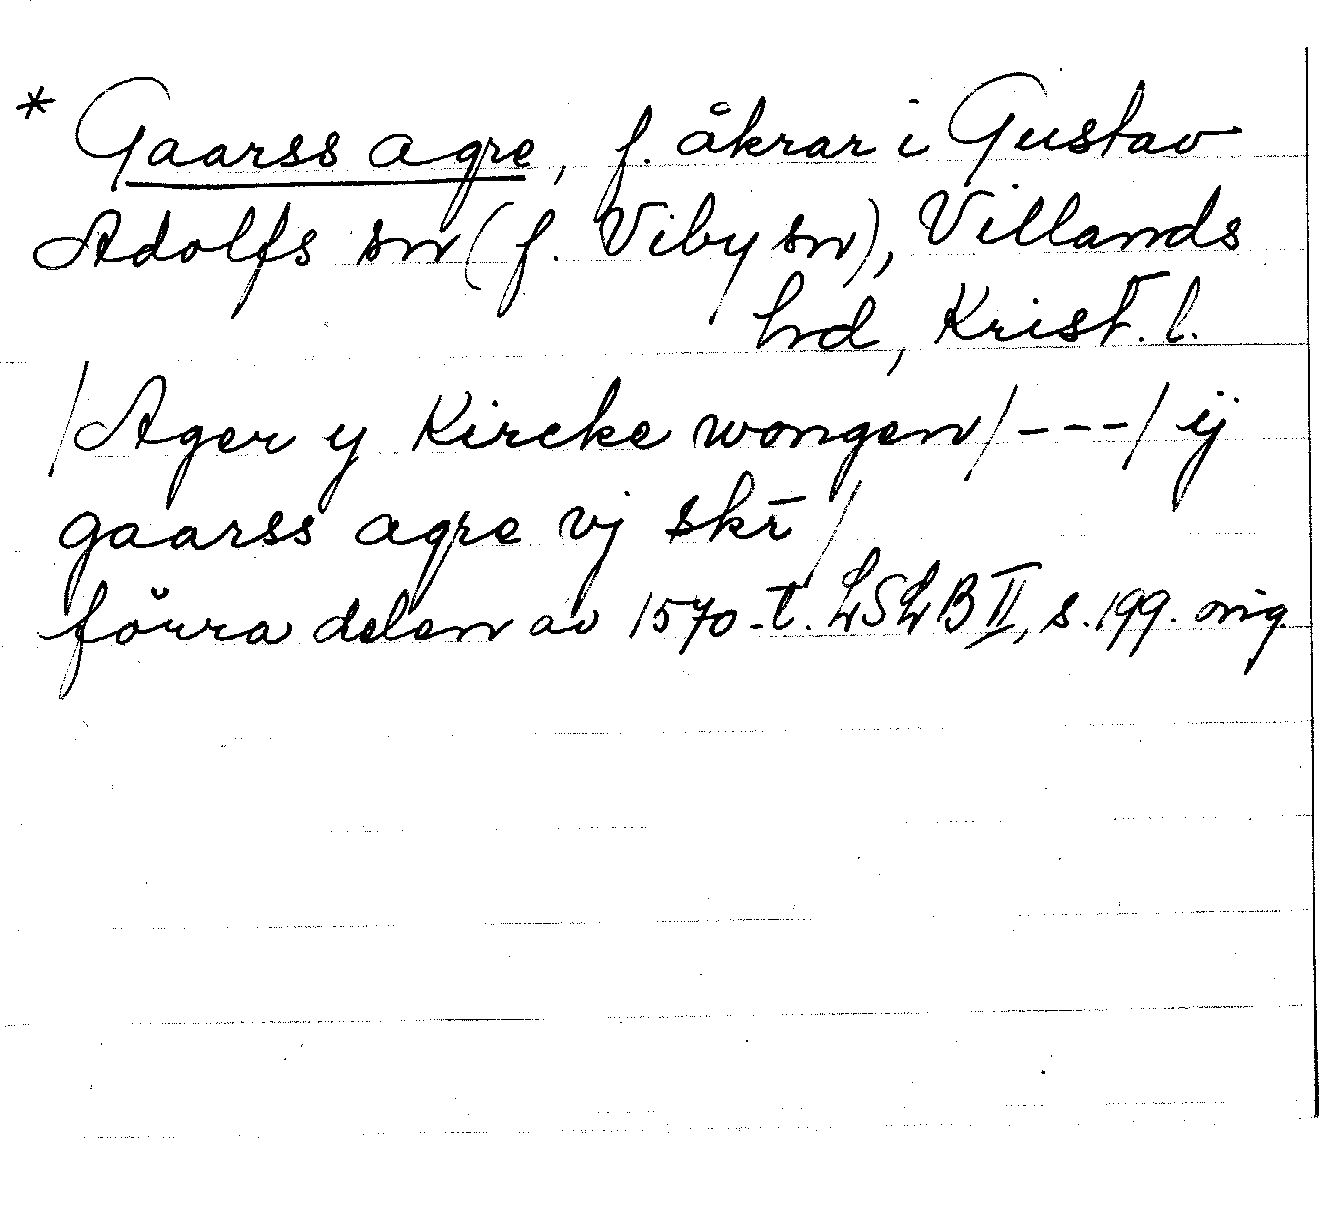 * Gaarss agre, f. åkrar i Gustav
Adolfs sn (f. Viby sn), Villands
hd, Krist. l.
/Ager y Kircke wongen/---/ ij
gaarss agre vj skr̄/
förra delen av 1570-t. LSLB II, s. 199. orig